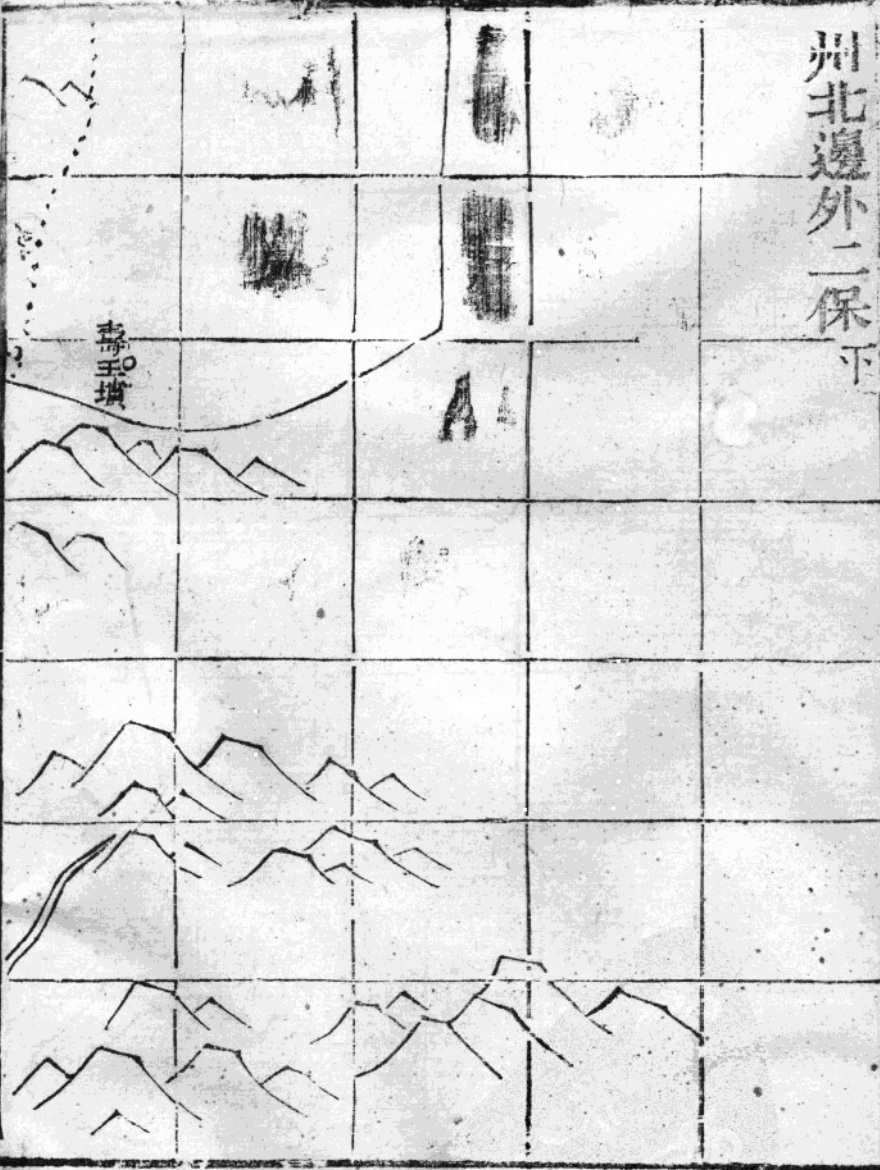 州北邊外二保下
壽王墳